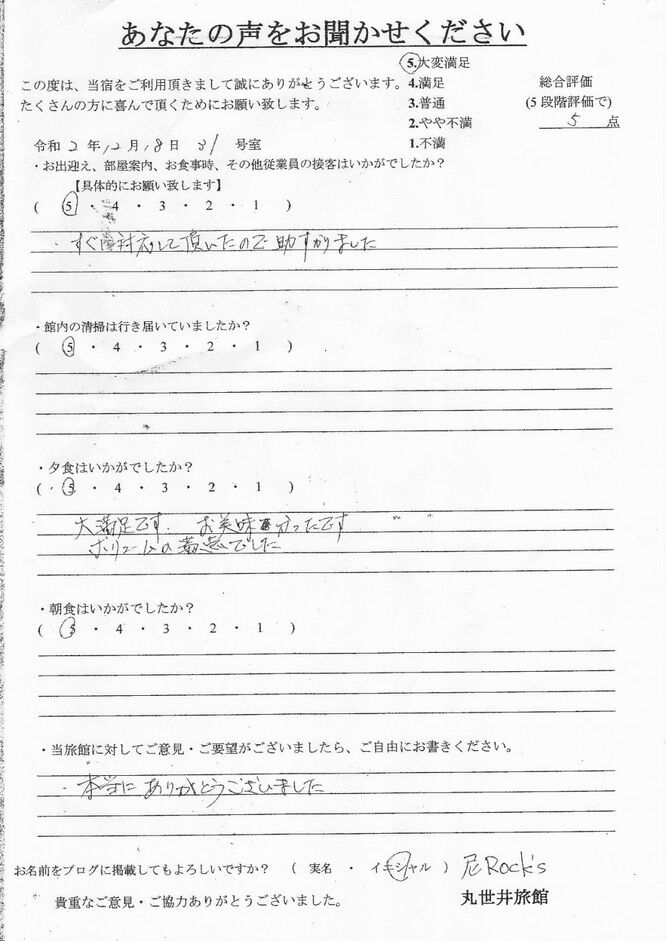 あなたの声をお聞かせください
この度は、当宿をご利用頂きまして誠にありがとうございます。
たくさんの方に喜んで頂くためにお願い致します。
5.大変満足
4.満足
3.普通
2.やや不満
1.不満
総合評価
(5段階評価で)
5 点
令和2年12月18日 31 号室
・お出迎え、部屋案内、お食事時、その他従業員の接客はいかがでしたか？
【具体的にお願い致します】
( 5 ・ 4 ・ 3 ・ 2 ・ 1 )
・すぐ対応して頂いたので助かりました
・館内の清掃は行き届いていましたか？
( 5 ・ 4 ・ 3 ・ 2 ・ 1 )
・夕食はいかがでしたか？
( 5 ・ 4 ・ 3 ・ 2 ・ 1 )
大満足です、お美味かったです
ボリュームの でした
・朝食はいかがでしたか？
( 5 ・ 4 ・ 3 ・ 2 ・ 1 )
・当旅館に対してご意見・ご要望がございましたら、ご自由にお書きください。
・本当にありがとうございました
お名前をブログに掲載してもよろしいですか？ ( 実名 ・ イニシャル ) Rock's
貴重なご意見・ご協力ありがとうございました。
丸世井旅館